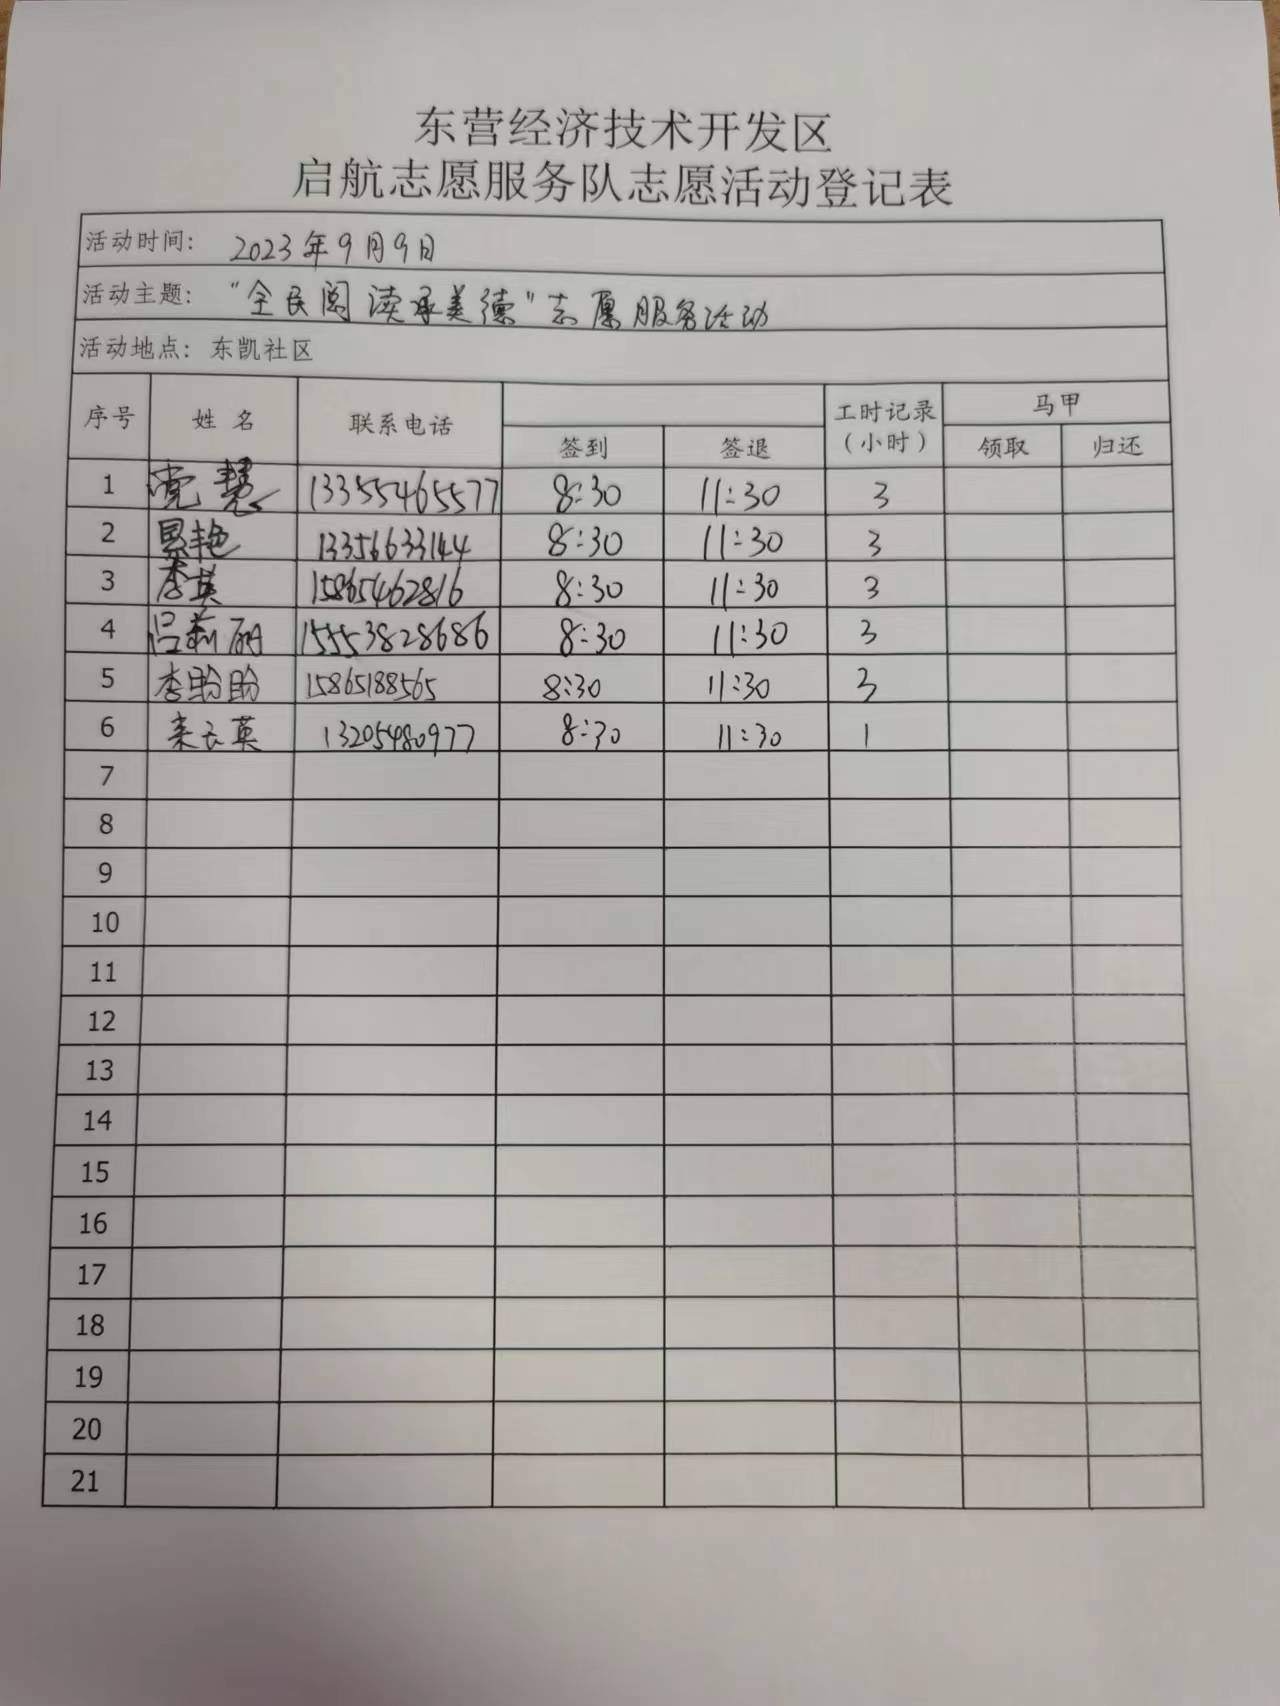 东营经济技术开发区
启航志愿服务队志愿活动登记表
活动时间: 2023年9月9日
活动主题: "全民阅读承美德"志愿服务活动
活动地点: 东凯社区
序号 姓名 联系电话 签到 签退 工时记录(小时) 马甲 领取 归还
1 慧 13355465577 8:30 11:30 3
2 艳 13356633144 8:30 11:30 3
3 李英 15865462816 8:30 11:30 3
4 吕莉丽 15553828686 8:30 11:30 3
5 李盼盼 15865188565 8:30 11:30 3
6 云英 13205480977 8:30 11:30 1
7
8
9
10
11
12
13
14
15
16
17
18
19
20
21